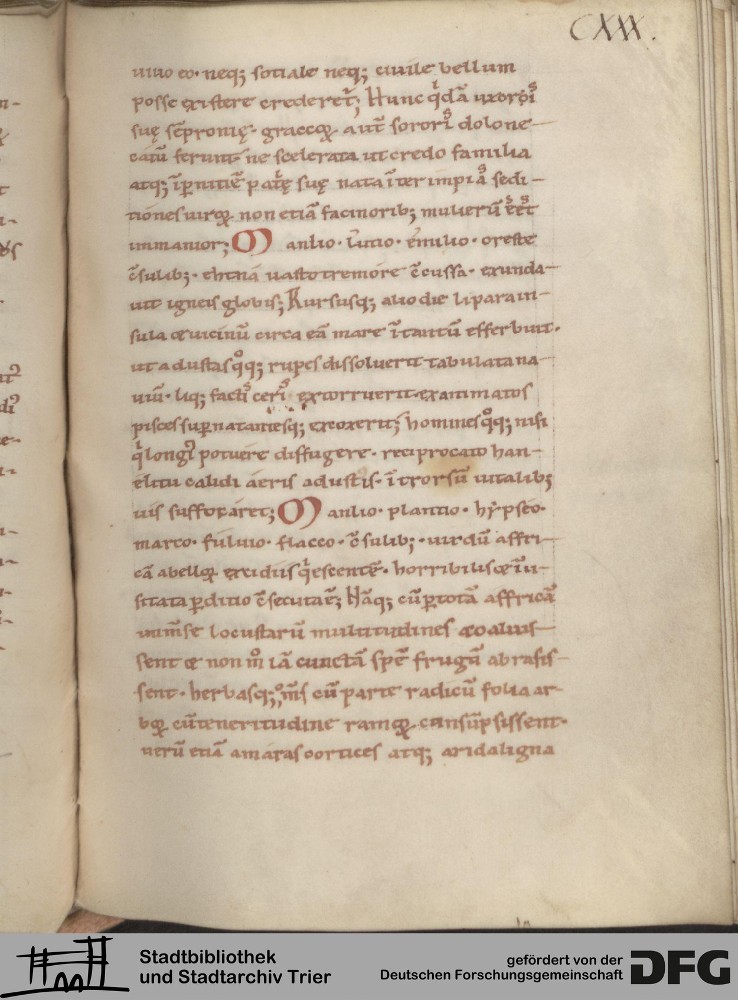 CXXX.
uiuo eo· neq; sotiale neq; ciuile bellum
posse existere crederet᷑; Hunc q̄dā uxoris
suę sēpronię· graccoꝝ aut̄ sororis dolo ne-
catū ferunt· ne scelerata ut credo familia
atq; īpnitiē patrię suę nata īter impia sedi-
tiones uiroꝝ non etiā facinorib; mulierū ēet
immanior; Manlio· lutio· emilio· oreste
c̄sulib;· ethna uasto tremore c̄cussa· exunda-
uit igneis globis; Rursusq; alio die lipara in-
sula & uicinū circa eā mare ītantū efferbuit·
ut adustas qͦq; rupes dissoluerit tabulata na-
uiū· liq; factis ceris extorruerit· exanimatos
pisces supnatantesq; excoxerit; homines qͦq; nisi
q̄ longius potuere diffugere· reciprocato han-
elitu calidi aeris adustis· ītrorsū uitalib;
uis suffocaret; Manlio· plantio· hypseo·
marco· fuluio· flacco· c̄sulib;· uixdū affri-
cā abelloꝝ excidiis q̄escentē· horribilis & inu-
sitata pditio c̄secuta ē; Nāq; cū ptotā affricā
inmēse locustarū multitudines coaluis-
sent & non m̊ iā cunctā spē frugū abrasis-
sent· herbasq; om̄s cū parte radicū folia ar-
boꝝ cū teneritudine ramoꝝ cunsūpsissent·
uerū etiā amaras cortices atq; arida ligna
Stadtbibliothek
und Stadtarchiv Trier
gefördert von der
Deutschen Forschungsgemeinschaft
DFG